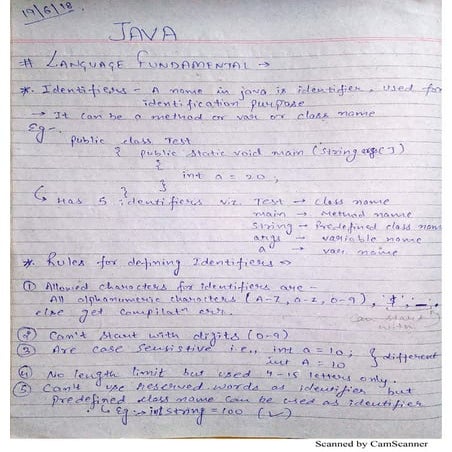 19/6/18.
JAVA
# LANGUAGE FUNDAMENTAL →
*. Identifiers - A name in java is identifier, used for
identification purpose
→ It can be a method or var or class name
Eg -.
public class Test
{ public static void main (String args[])
{
int a = 20;
}
}
↳ Has 5 identifiers viz. Test → class name
main → Method name
String → Predefined class name
args → variable name
a → var. name
*. Rules for defining Identifiers →
① Allowed characters for identifiers are -
All alphanumeric characters (A-Z, a-z, 0-9), '$', '_',
else get compilatn err. can start with
② Can't start with digits (0-9)
③ Are case Sensitive i.e., int a = 10; } different
int A = 10
④ No length limit but used 4-15 letters only.
⑤ Can't use Reserved words as identifier but
Predefined class name can be used as identifier
↳ Eg:- int String = 100 (✓)
Scanned by CamScanner